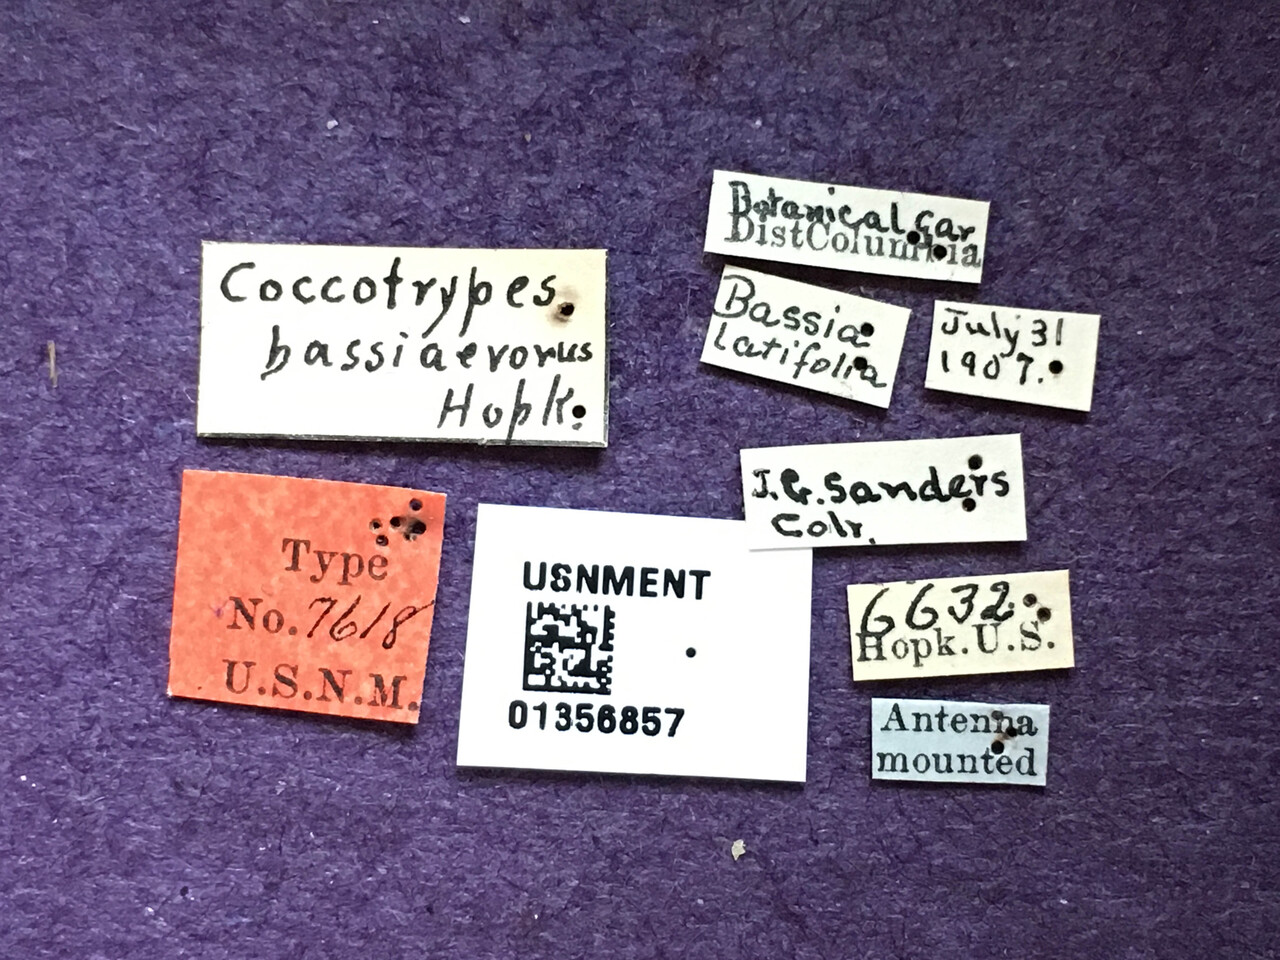 Coccotrypes
bassiaevorus
Hopk.
Type
No. 7618
U.S.N.M.
USNMENT
01356857
Botanical Gar
DistColumbia
Bassia
latifolia
July 31
1907.
J.G. Sanders
Colr.
6632
Hopk. U.S.
Antenna
mounted